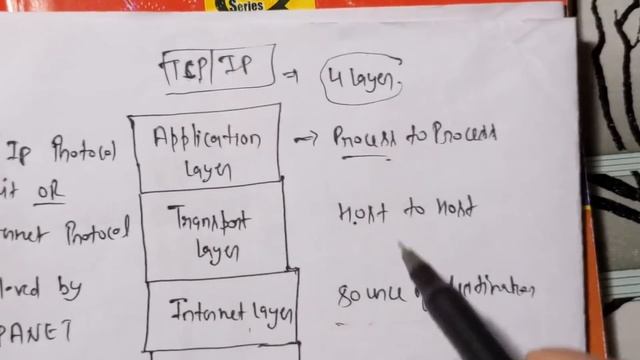 Series
TCP/IP → 4 Layer.
Ip Protocol
Application Layer → Process to Process
it OR
Transport Layer
Host to Host
rnet Protocol
loved by
Internet Layer
Source
PANET